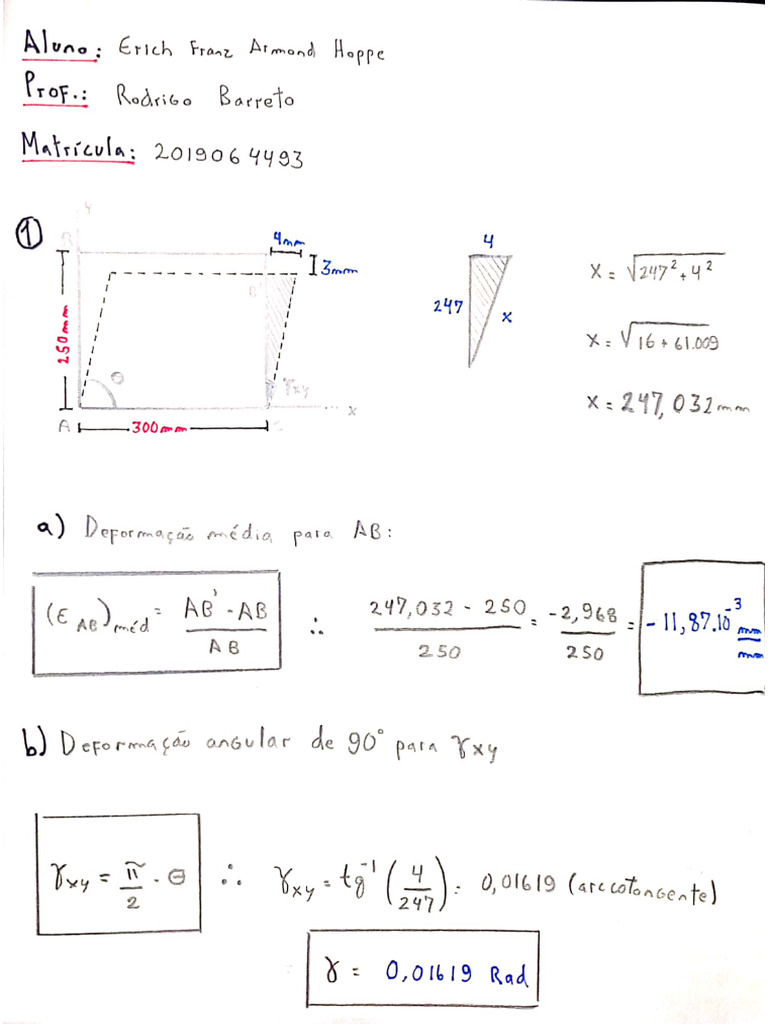 Aluno: Erich Franz Armond Hoppe
Prof.: Rodrigo Barreto
Matrícula: 2019064493
1
y
B
4mm
3mm
B'
250mm
θ
γxy
x
A
300mm
C
4
247
x
x = √247² + 4²
x = √16 + 61.009
x = 247,032mm
a) Deformação média para AB:
(ε AB)méd = AB' - AB / AB ∴ 247,032 - 250 / 250 = -2,968 / 250 = -11,87.10⁻³ mm/mm
b) Deformação angular de 90° para γxy
γxy = π/2 - θ ∴ γxy = tg⁻¹ (4/247) = 0,01619 (arccotangente)
γ = 0,01619 Rad